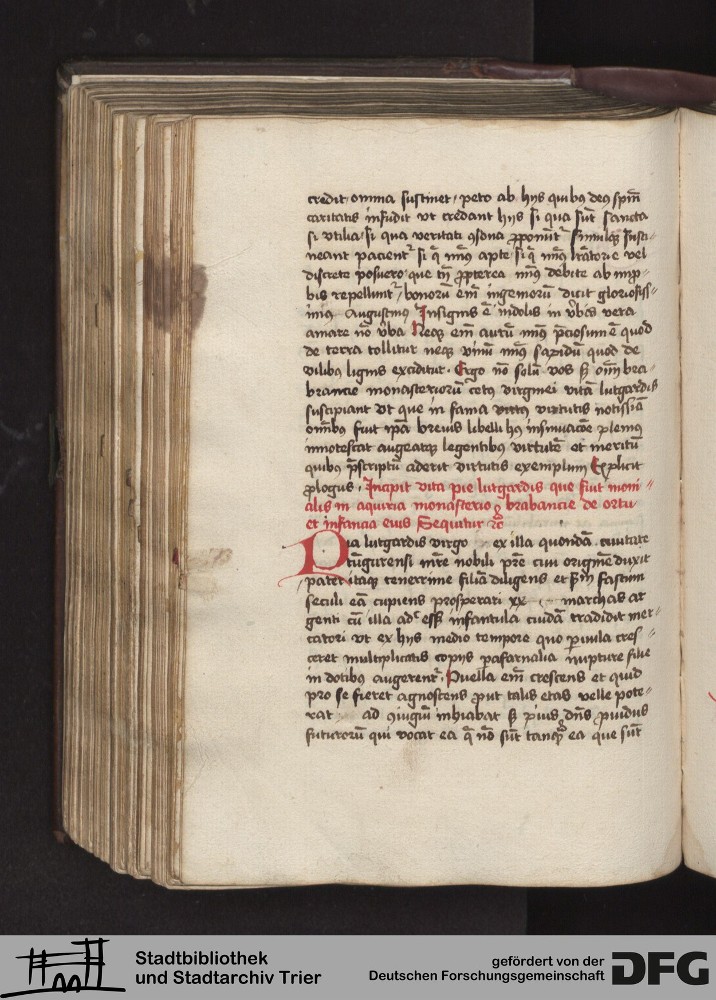 credit omnia sustinet / peto ab hijs quibus deus spm̄
caritatis infudit vt credant hijs si qua sūt sancta
si vtilia si qua veritati ꝯsona ꝓponūt᷑
neant pacient᷑ si q̄ minꝰ apte si q̄ minꝰ vel
discrete posuero que tn̄ ꝓpterea minꝰ debite ab imp-
bis repellunt᷑ / bonorū em̄ ingeniorū dicit gloriosiss-
imꝰ Augustinꝰ Insignis ē indolis in v̄bis vera
amare nō v̄ba Neqꝫ em̄ aurū minꝰ p̄ciosum ē quod
de terra tollitur neqꝫ vinū minꝰ sapidū quod de
vilibus lignis exciditur. Ergo nō solū vos sꝫ om̄ bra-
brancie monasteriorū cetꝰ virginei vitā lutgardis
suscipiant vt que in fama virtutis notissīa
om̄ibus fuit ip̄a breuis libelli hꝰ insinuacōe plenius
innotescat augeatqꝫ legentibus virtutē et meritū
quibus p̄scriptū aderit virtutis exemplum Explicit
ꝓlogus. Incipit vita pie lutgardis que fuit moni-
alis in aquiria monasterio brabancie de ortu
et infancia eius Sequitur ⁊c̄
Pia lutgardis virgo ex illa quondā ciuitate
tūgurensi mr̄e nobili pr̄e ciui originē duxit
pater itaqꝫ tenerrime filiā diligens et sc̄dm fastum
seculi eā cupiens prosperari xx marchas ar
genti cū illa adᶜ ess infantula cuidā tradidit mer-
catori vt ex hijs medio tempore quo puula cres-
ceret multiplicatis copijs pafarnalia nupture filie
in dotibus augerent᷑. Puella em̄ crescens et quid
pro se fieret agnoscens ꝓut talis etas velle pote-
rat ad ꝯiugiū inhiabat sꝫ pius dn̄s ꝓuidus
futurorū qui vocat ea q̄ nō sūt tanqꝫ ea que sūt
Stadtbibliothek
und Stadtarchiv Trier
gefördert von der
Deutschen Forschungsgemeinschaft
DFG